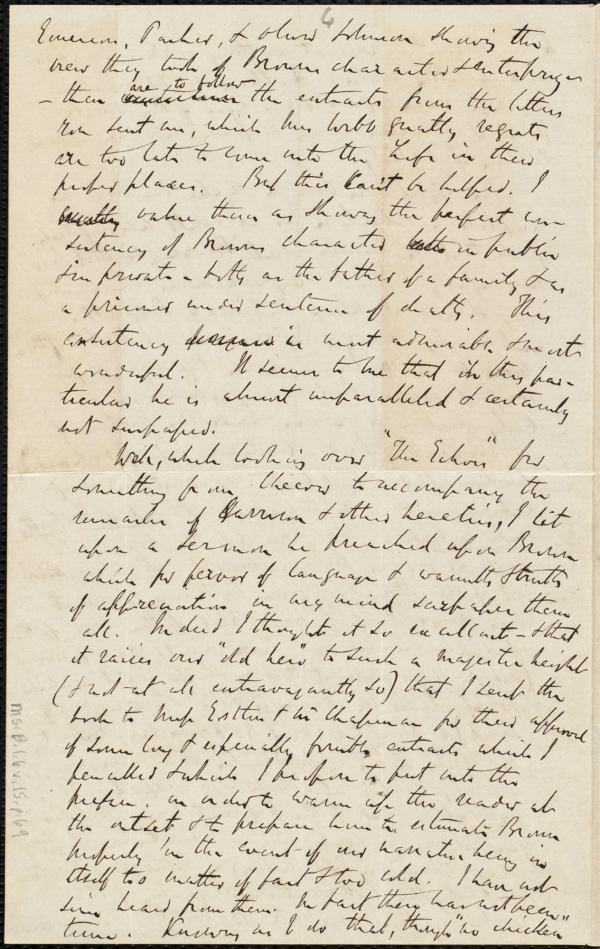 6
Emerson, Parker, & Oliver Johnson showing the
view they took of Browns character & enterprize
– then are to follow the extracts from the letters
you sent me, which Miss Webb greatly regrets
are too late to come into the Life in their
proper places. But this can't be helped. I
value them as showing the perfect con-
sistency of Browns character in public
& in private – both as the father of a family & as
a prisoner under sentence of death. This
consistency is most admirable & most
wonderful. It seems to me that in this par-
ticular he is almost unparalleled & certainly
not surpassed.
Well, while looking over "The Echoes" for
something from Cheever to accompany the
remarks of Garrison & other heretics, I lit
upon a sermon he preached upon Brown
which for fervor of language & warmth & truth
of appreciation in my mind surpasses them
all. Indeed I thought it so excellent – & that
it raises our "old hero" to such a majestic height
(& not at all extravagantly so) that I sent the
book to Miss Estlin & Mrs Chapman for their approval
of some long & especially forcible extracts which I
pencilled & which I propose to put into the
preface. in order to warm up the reader at
the outset & to prepare him to estimate Brown
properly in the event of our narrative being in
itself too matter of fact & too cold. I have not
since heard from them. In fact there has not been
time. Knowing as I do that, though "no chicken"
Ms.B.1.6 v.15, 7, 69